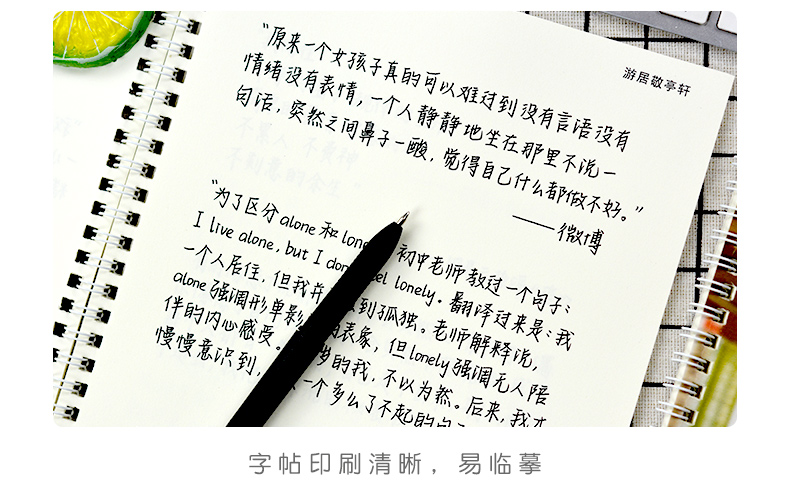 游居敬亭轩
“原来一个女孩子真的可以难过到没有言语没有
情绪没有表情，一个人静静地坐在那里不说一
句话，突然之间鼻子一酸，觉得自己什么都做不好。”
——微博
“为了区分alone和lone 初中老师教过一个句子：
I live alone, but I don eel lonely. 翻译过来是：我
一个人居住，但我并 到孤独。老师解释说，
alone强调形单影 表象，但lonely强调无人陪
伴的内心感受。 岁的我，不以为然。后来，我才
慢慢意识到， 一个多么了不起的句
字帖印刷清晰，易临摹